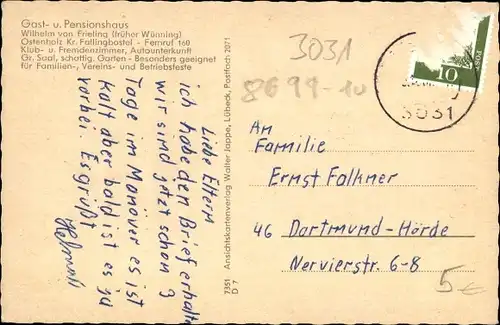 Gast- u. Pensionshaus
Wilhelm von Frieling (früher Wünning)
Ostenholz Kr. Fallingbostel - Fernruf 160
Klub- u. Fremdenzimmer, Autounterkunft
Gr. Saal, schattig. Garten - Besonders geeignet
für Familien-, Vereins- und Betriebsfeste
3031
8699-10
10
POST
3031
Liebe Eltern
ich habe den Brief erhalten
wir sind jetzt schon 3
Tage im Manöver es ist
kalt aber bald ist es ja
vorbei. Es grüßt
Helmut
7351 Ansichtskartenverlag Walter Jappe, Lübeck, Postfach 2071
D 7
An
Familie
Ernst Falkner
46 Dortmund-Hörde
Nervierstr. 6-8
5€